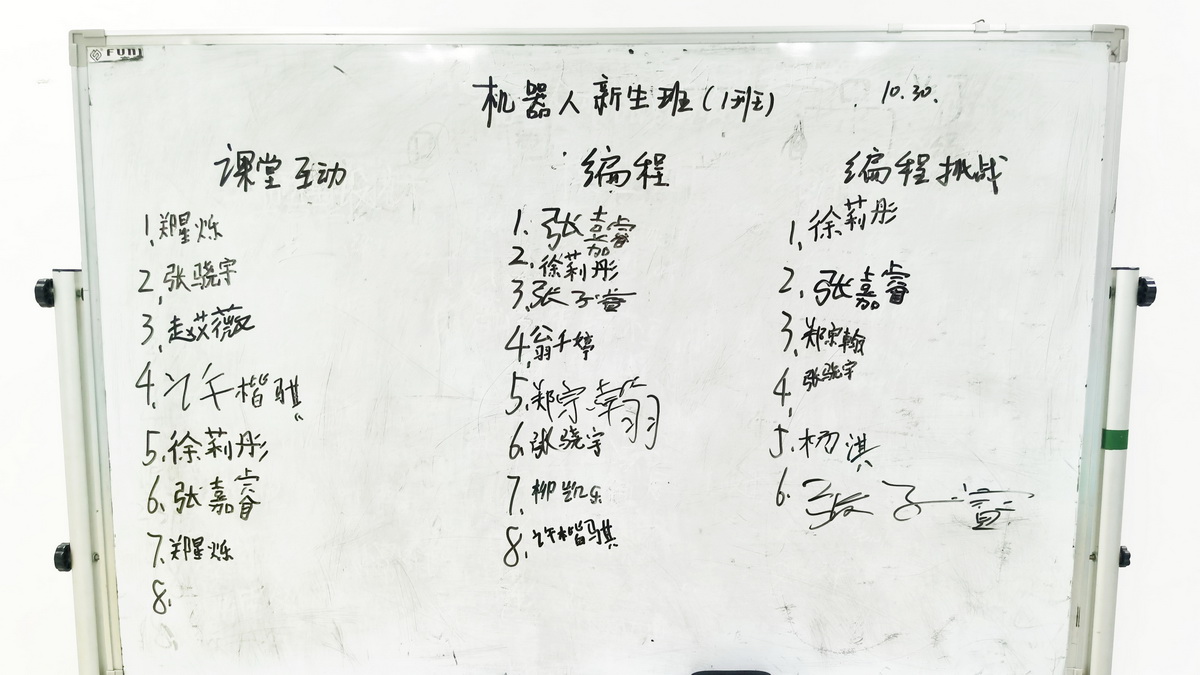 FUNJ
机器人新生班(1班)
10.30.
课堂互动
1.郑星烁
2.张骁宇
3.赵艾薇
4.许楷骐
5.徐莉彤
6.张嘉睿
7.郑星烁
8.
编程
1.张嘉睿
2.徐莉彤
3.张子萱
4.翁千婷
5.郑宗翰
6.张骁宇
7.柳凯乐
8.许楷骐
编程挑战
1.徐莉彤
2.张嘉睿
3.郑宗翰
4.张骁宇
5.杨淇
6.张子萱